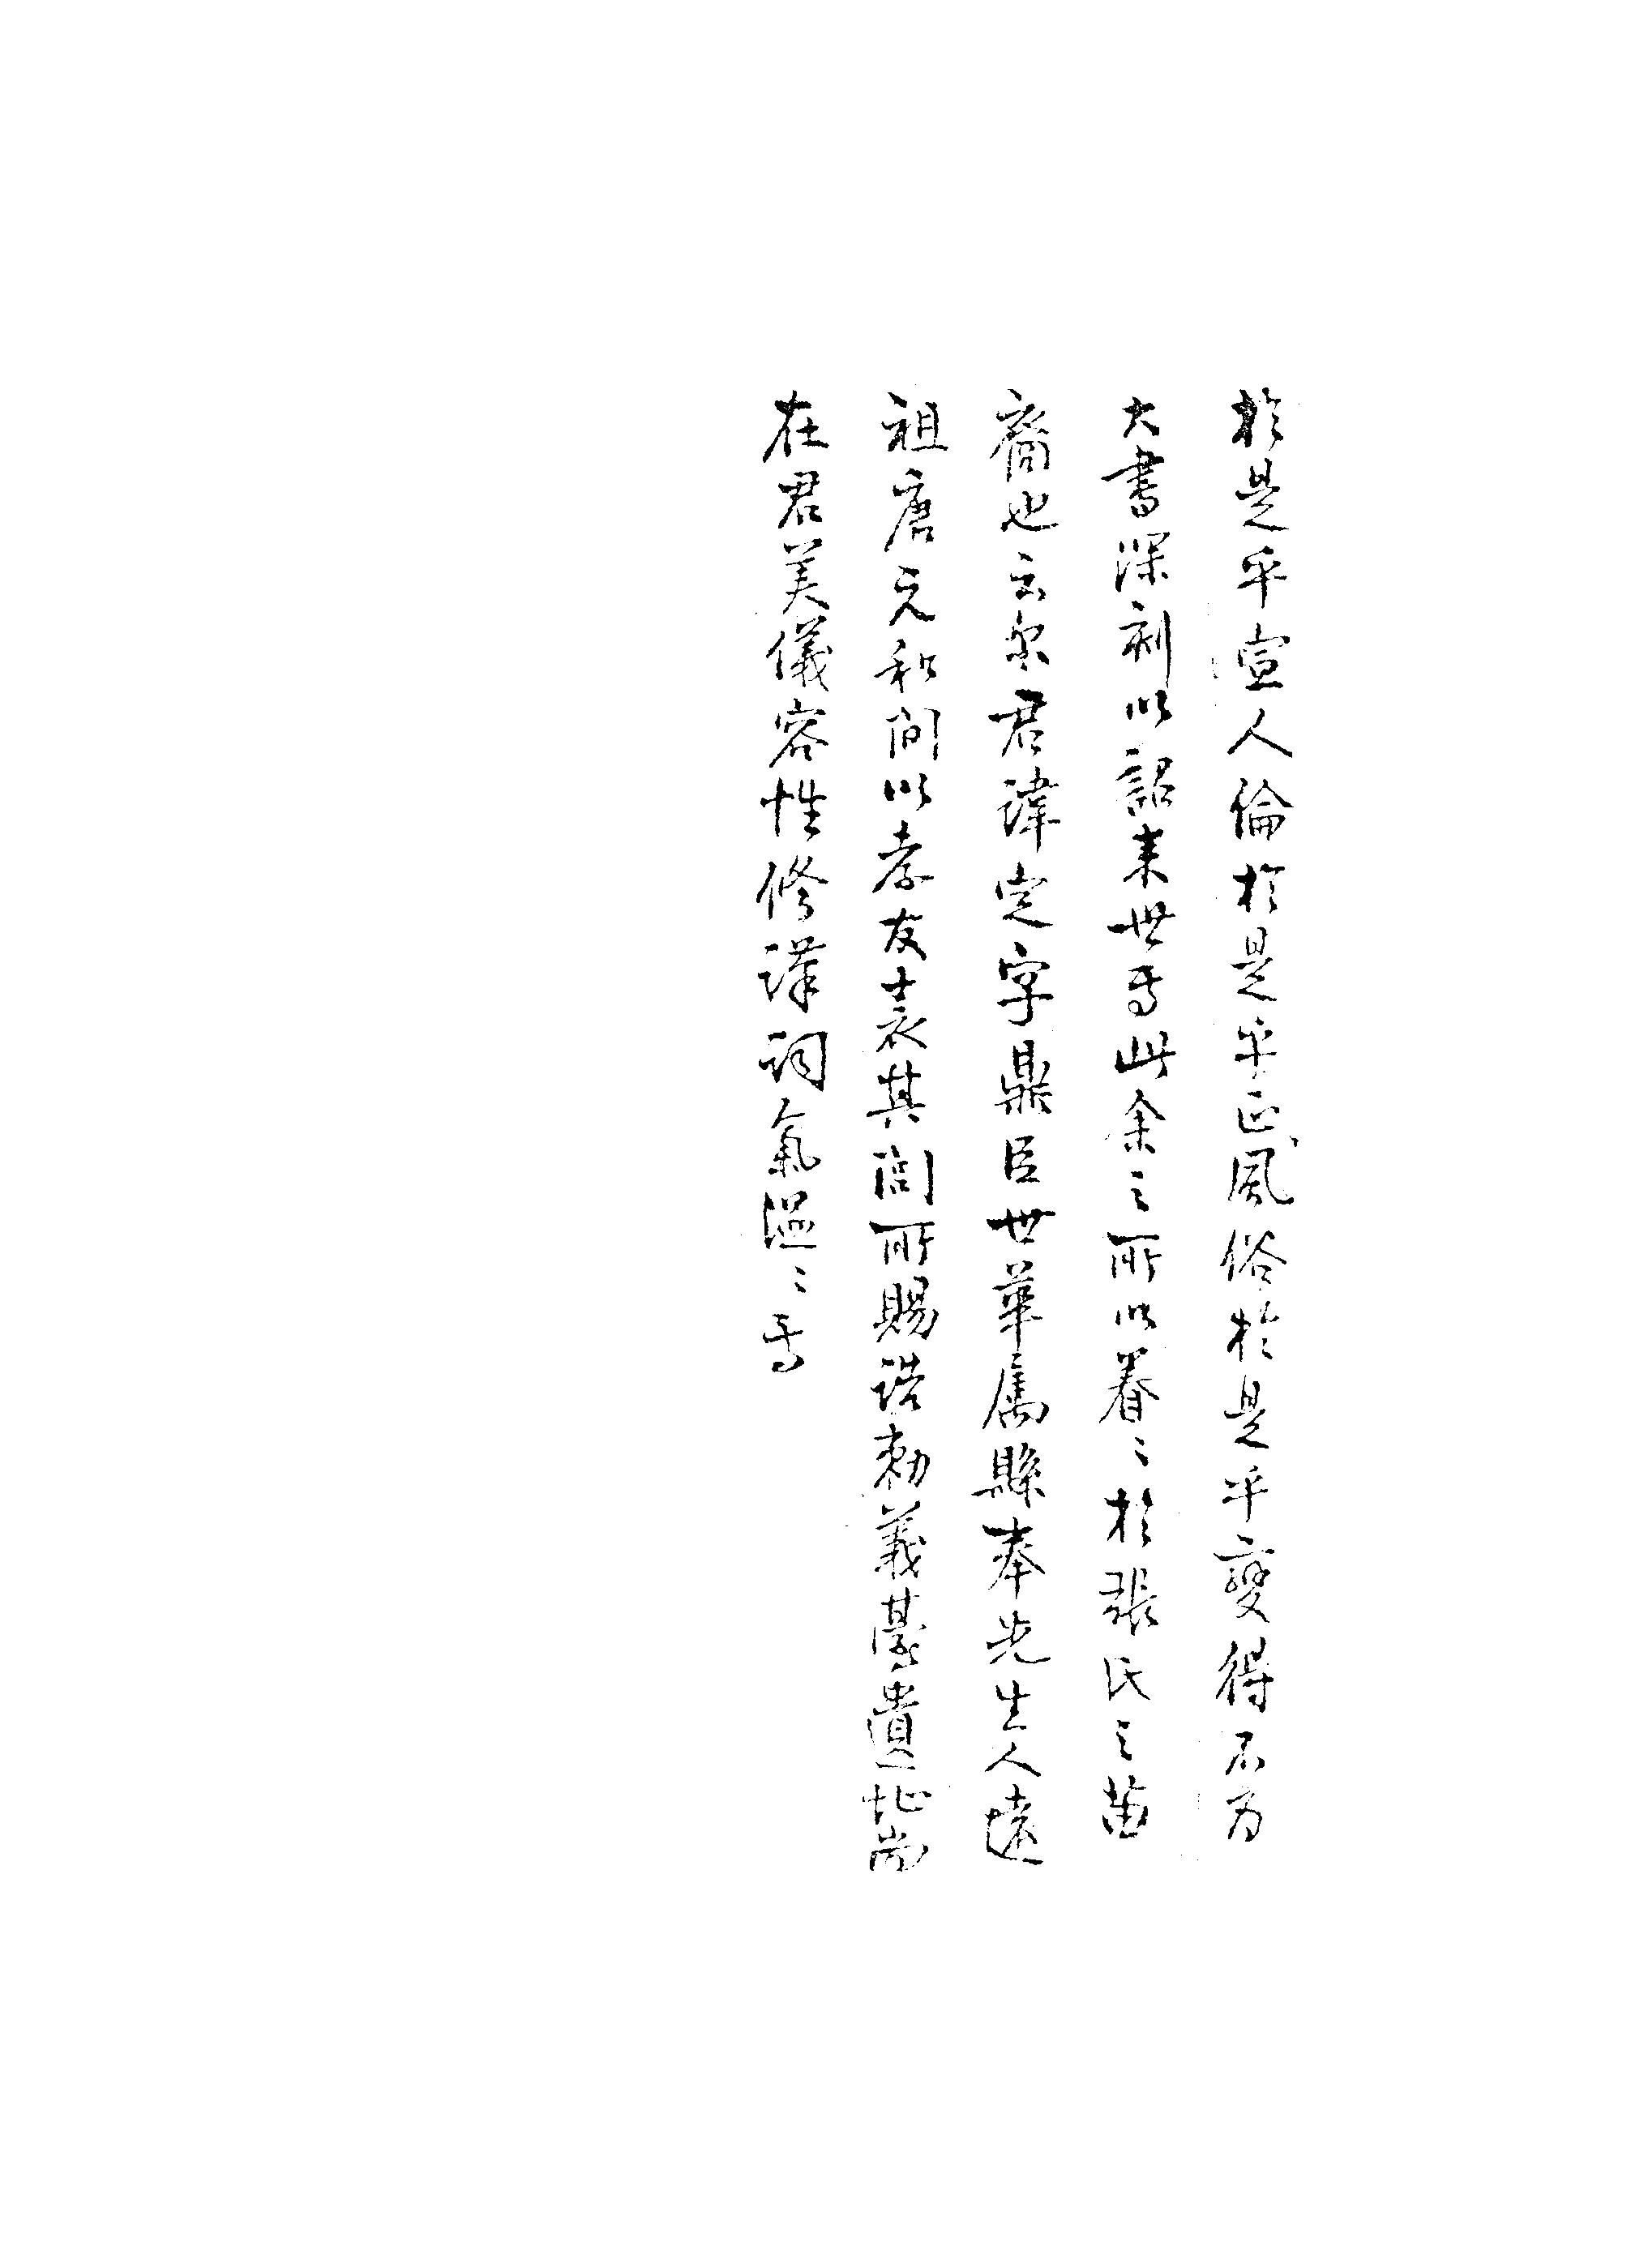 於是乎宣人倫於是乎正風俗於是乎變得不為
大書深刻以詔来世焉此余之所以眷〻於張氏之苗
裔也云尓君諱定字鼎臣世華属縣奉先生人遠
祖唐元和間以孝友表其閭所賜誥勅義臺遺址尚
在君美儀容性修謹詞氣温〻焉